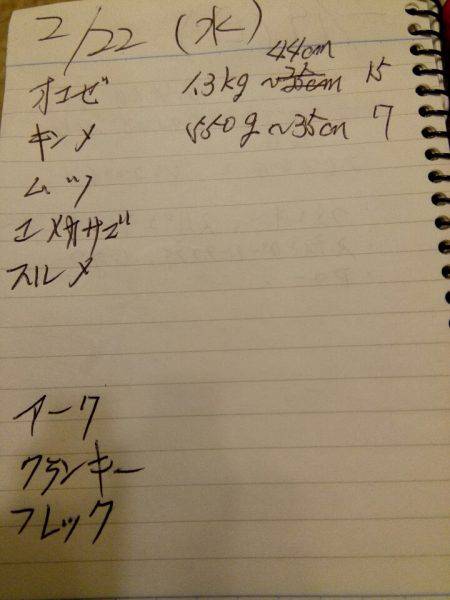 2/22 (水)
44cm
オエゼ 1.3kg ~35cm 15
キンメ 550g ~35cm 7
ムツ
ユメカサゴ
スルメ
アーク
クランキー
フレック